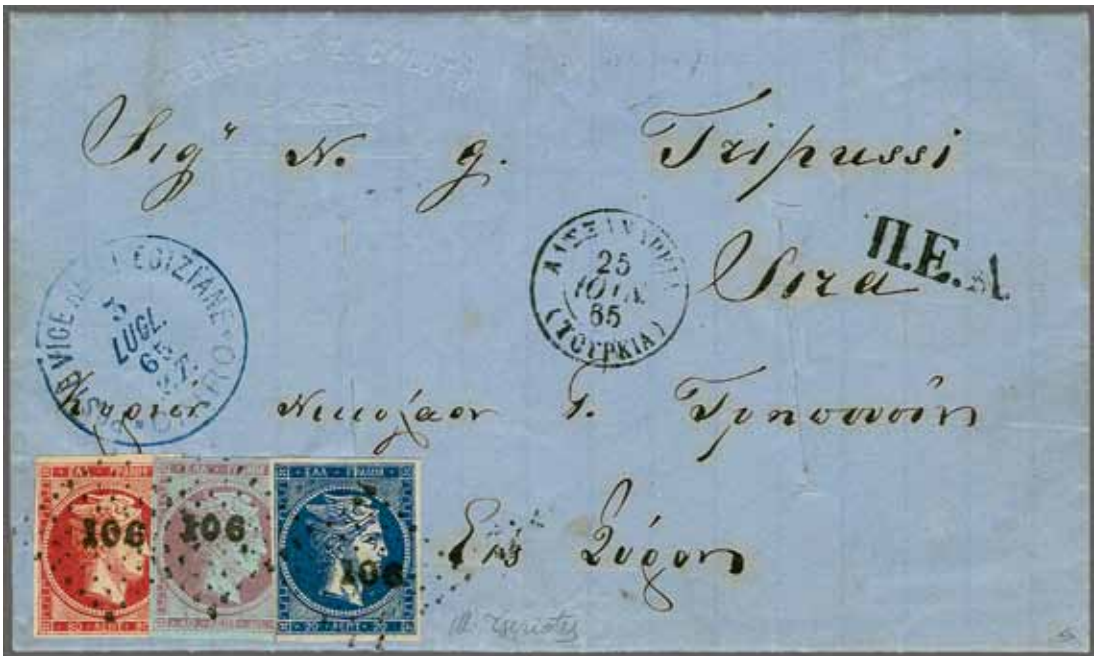 Sigʳ N. g. Tripussi
Sira
Π.Ε.Λ
ΑΛΕΞΑΝΔΡΕΙΑ
25
ΙΟΥΝ
65
(ΤΟΥΡΚΙΑ)
POSTE VICEREALI EGIZIANE
CAIRO
5
LUGL.
65
Κύριον Νικολαον Γ. Τρηπουσην
Εἰς Σύρον
ΕΛΛ ΓΡΑΜΜ
106
80 ΛΕΠΤ 80
ΕΛΛ ΓΡΑΜΜ
106
ΕΛΛ ΓΡΑΜΜ
106
20 ΛΕΠΤ 20